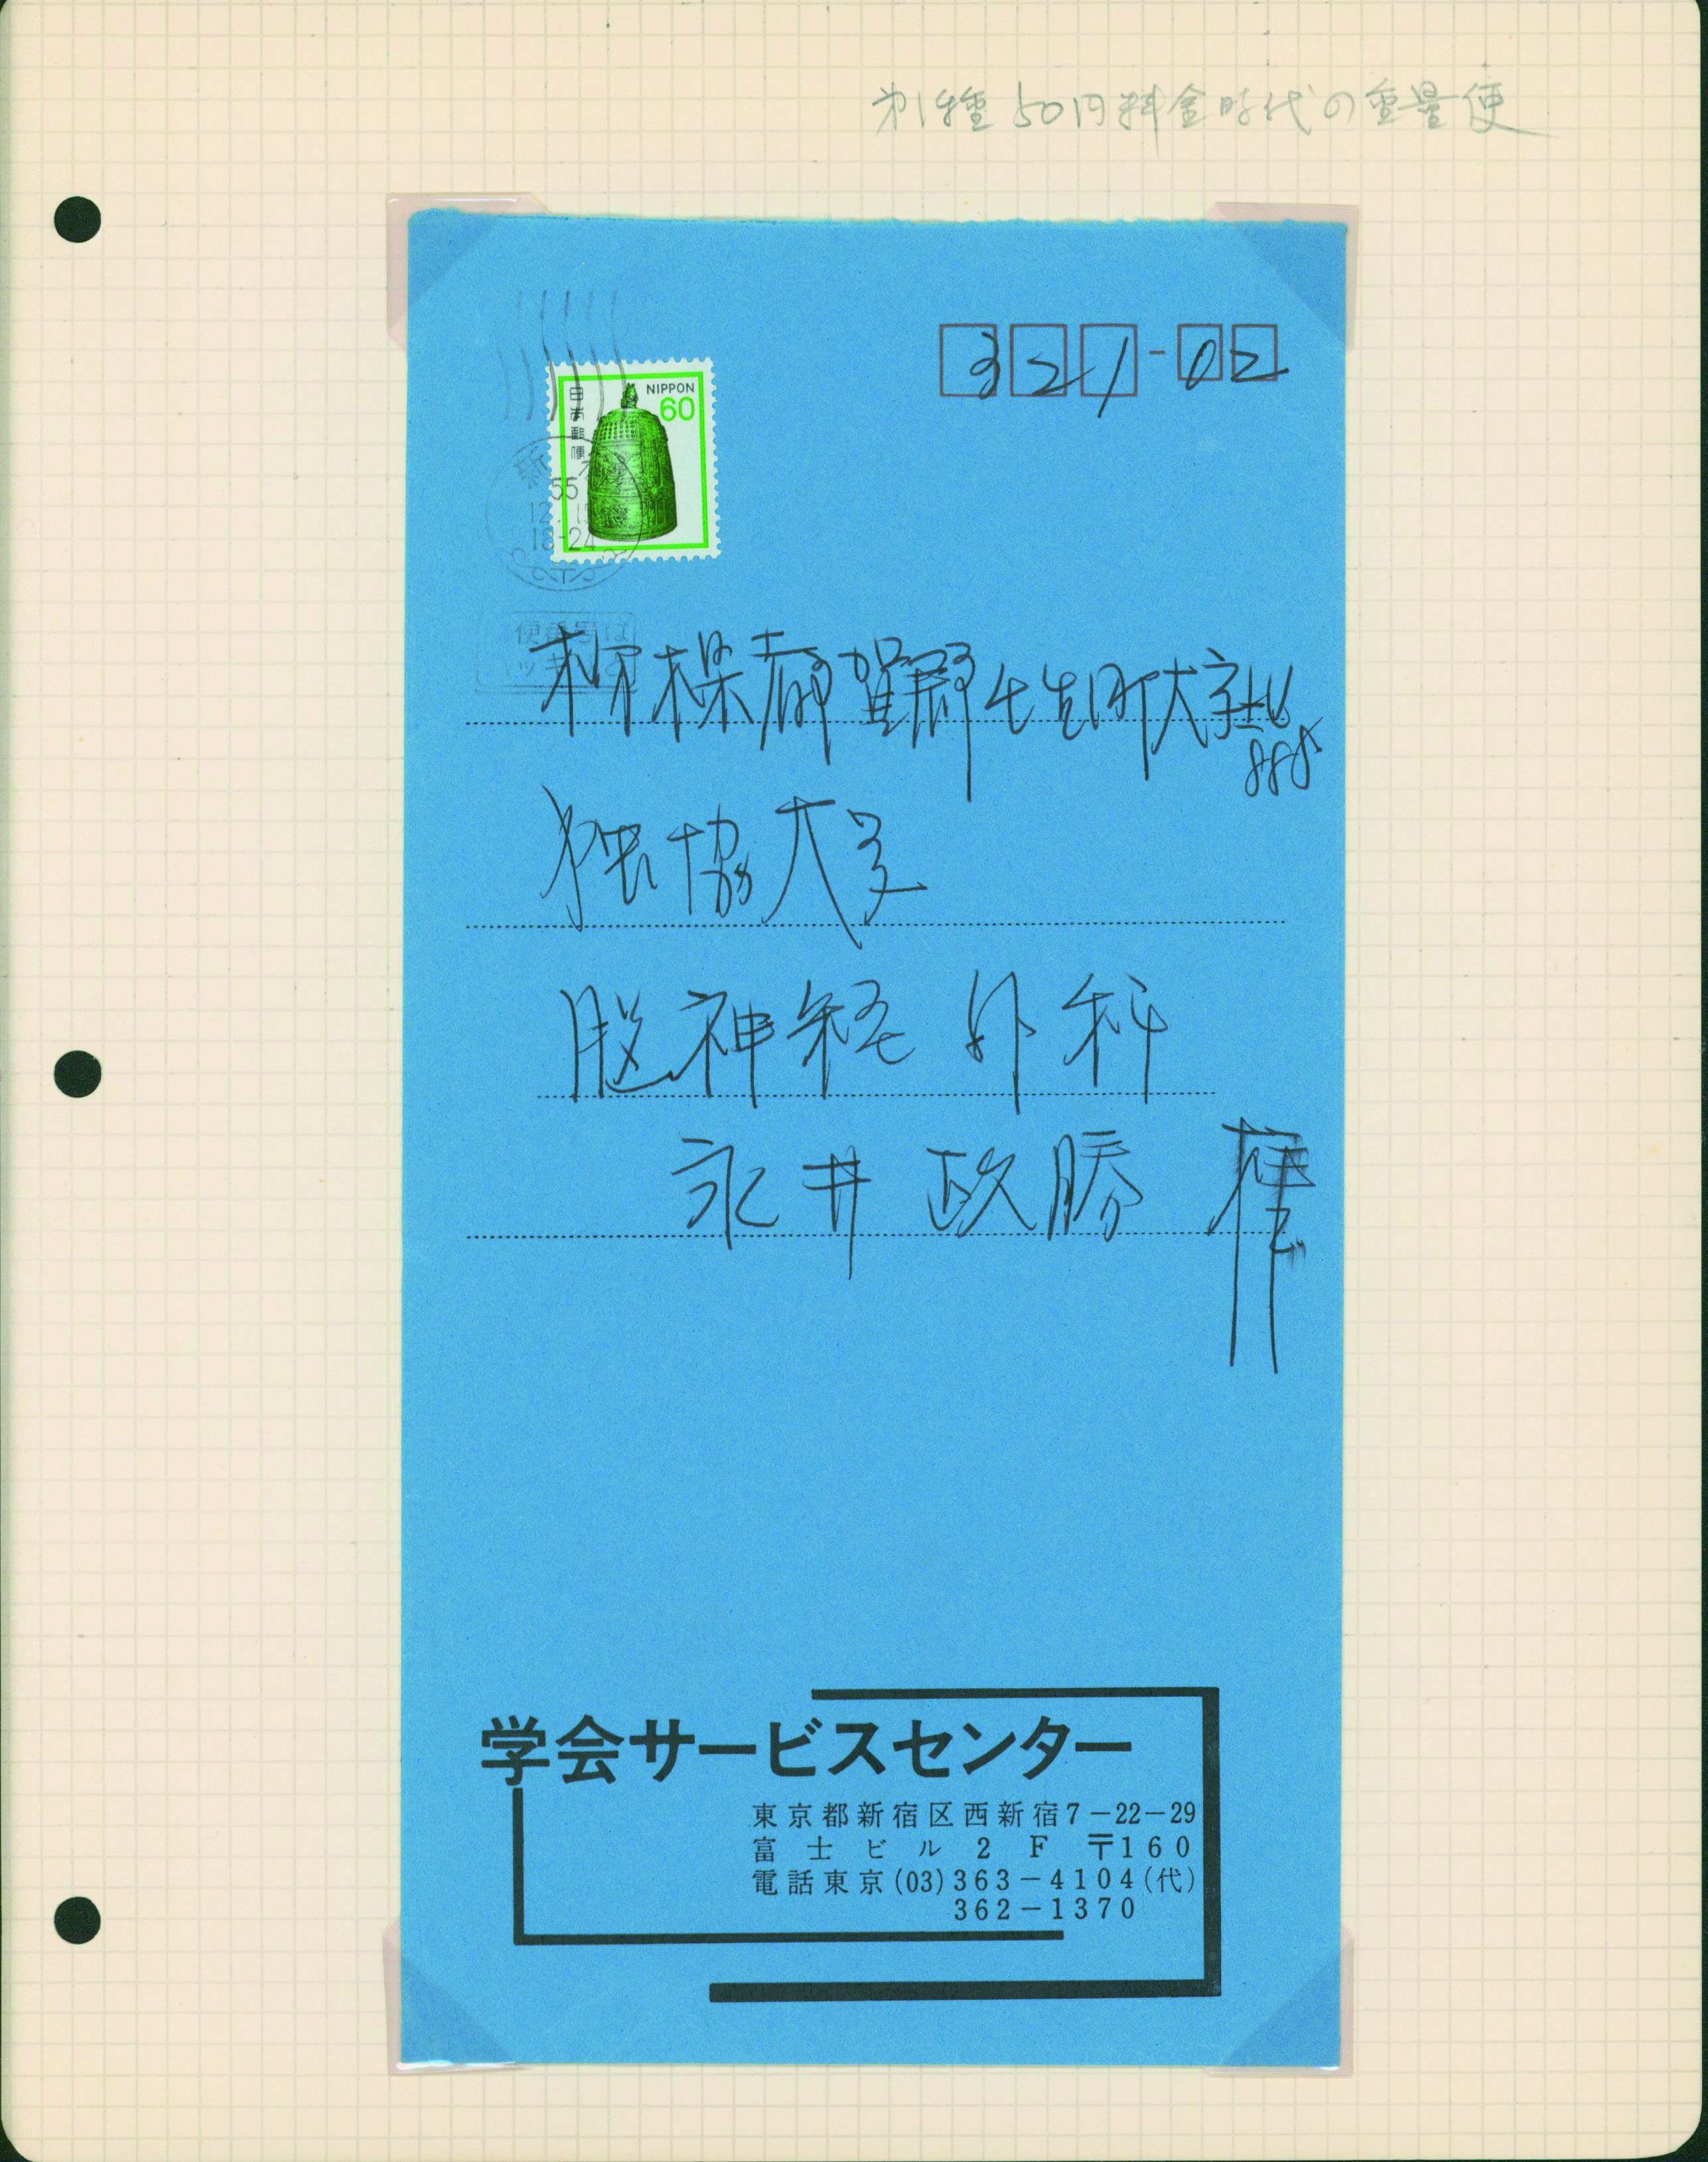 第1種50円料金時代の重量便
321-02
NIPPON
60
日本郵便
新
55
12.15
18-24
便番号は
ッキ
栃木県都賀郡壬生町大字北
880
独協大学
脳神経外科
永井政勝
学会サービスセンター
東京都新宿区西新宿7-22-29
富士ビル2F 〒160
電話東京(03)363-4104(代)
362-1370